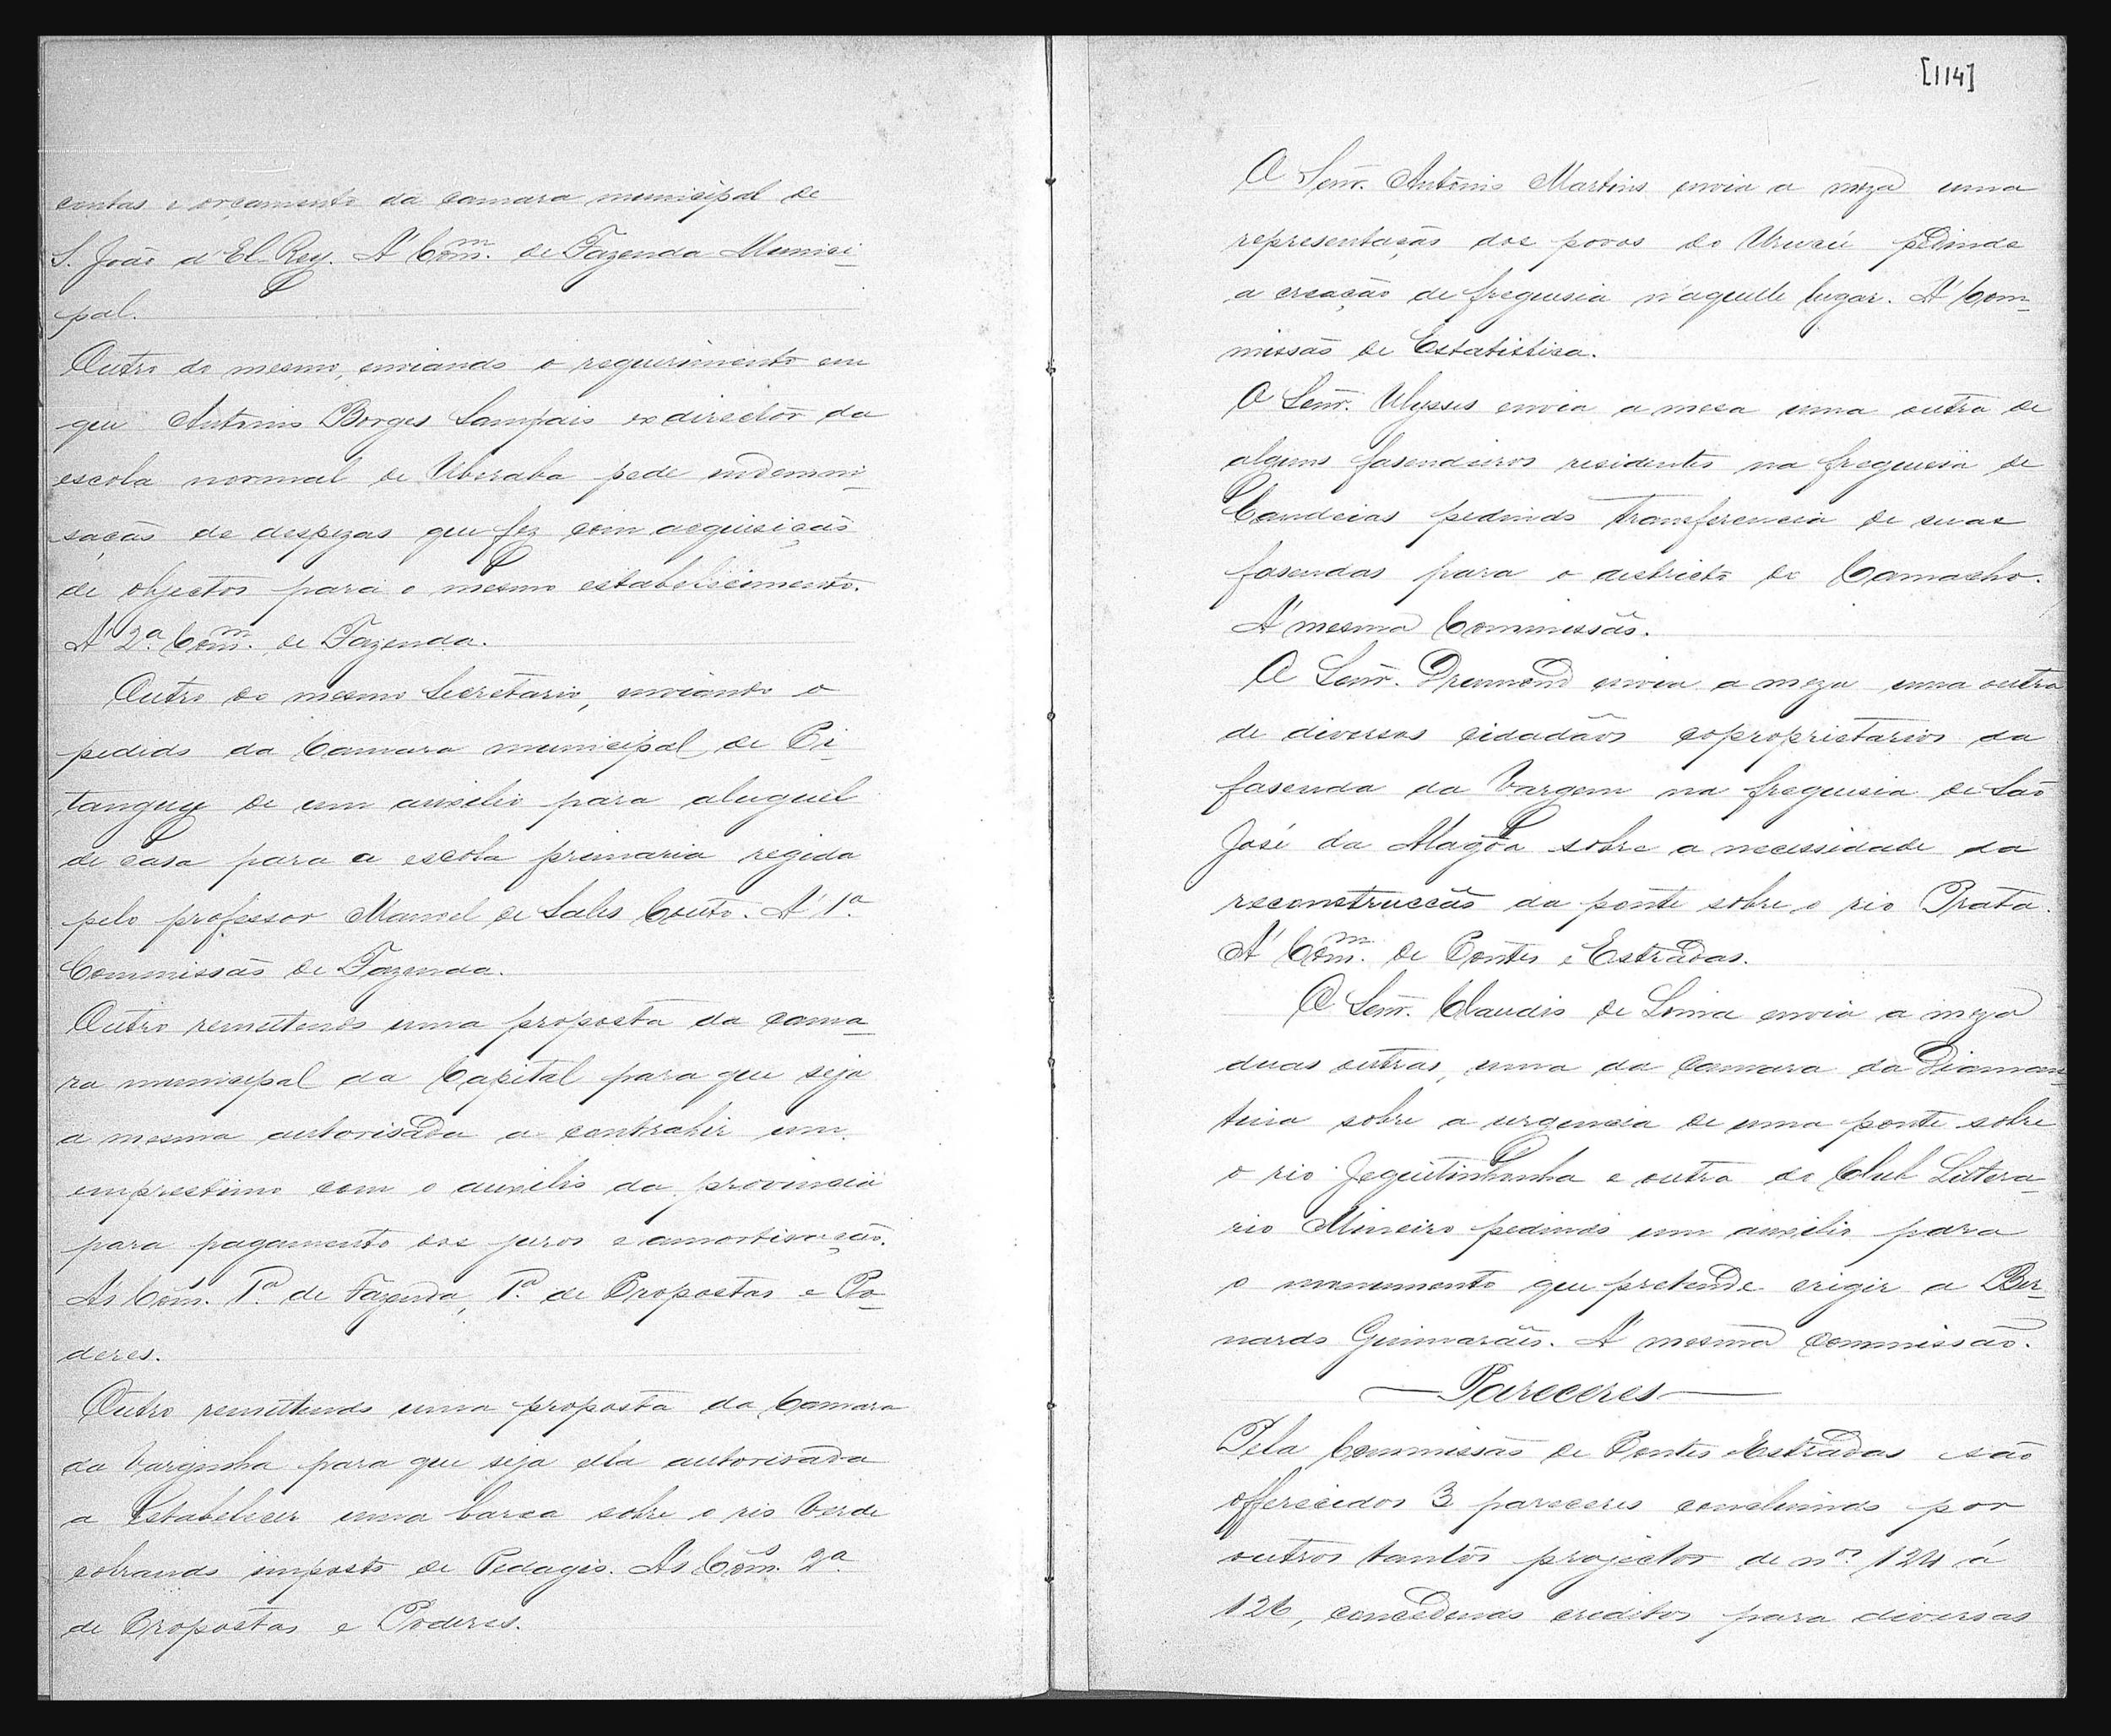 contas e orçamento da camara municipal de
S. João d'El-Rey. A' Com.m de Fazenda Munici-
pal.
Outro do mesmo, enviando o requerimento em
que Antonio Borges Sampaio ex director da
escola normal de Uberaba pede indemni-
sação de despezas que fez com acquisição
de objectos para o mesmo estabelecimento.
A' 2.a Com.m de Fazenda.
Outro do mesmo Secretario, enviando o
pedido da Camara municipal de Pi-
tanguy de um auxilio para aluguel
de casa para a escola primaria regida
pelo professor Manoel de Sales Couto. A' 1.a
Commissão de Fazenda.
Outro remettendo uma proposta da cama-
ra municipal da Capital para que seja
a mesma autorisada a contrahir um
emprestimo com o auxilio da provincia
para pagamento dos juros e amortisação.
A's Com.s 1.a de Fazenda, 1.a de Propostas e Po-
deres.
Outro remettendo uma proposta da Camara
da Varginha para que seja ella autorisada
a Estabelecer uma barca sobre o rio Verde
cobrando imposto de Pedagio. A's Com.s 2.a
de Propostas e Poderes.
[114]
O Senr. Antônio Martins envia a meza uma
representação dos povos do Urucú pedindo
a creação de freguesia n'aquelle lugar. A' Com-
missão de Estatistica.
O Senr. Ulysses envia a mesa uma outra de
alguns fasendeiros residentes na freguesia de
Candeias pedindo transferencia de suas
fasendas para o districto do Camacho.
A' mesma Commissão.
O Senr. Drumond envia a meza uma outra
de diversos cidadãos coproprietarios da
fasenda da Vargem na freguesia de São
José da Alagôa sobre a necessidade da
reconstrucção da ponte sobre o rio Prata.
A' Com.m de Pontes e Estradas.
O Senr. Claudio de Lima envia a meza
duas outras, uma da camara da Diaman-
tina sobre a urgencia de uma ponte sobre
o rio Jequitinhonha e outra do Club Littera-
rio Mineiro pedindo um auxilio para
o monumento que pretende erigir a Ber-
nardo Guimarães. A' mesma commissão.
— Pareceres —
Pela Commissão de Pontes e Estradas são
offerecidos 3 pareceres concluindo por
outros tantos projectos de n.os 124 á
126, concedendo creditos para diversas